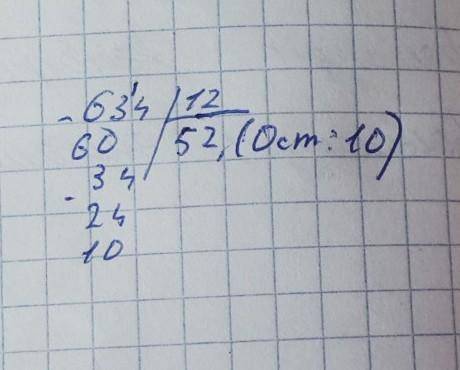 - 63'4 / 12
60 / 52, (Ост: 10)
- 34
24
10